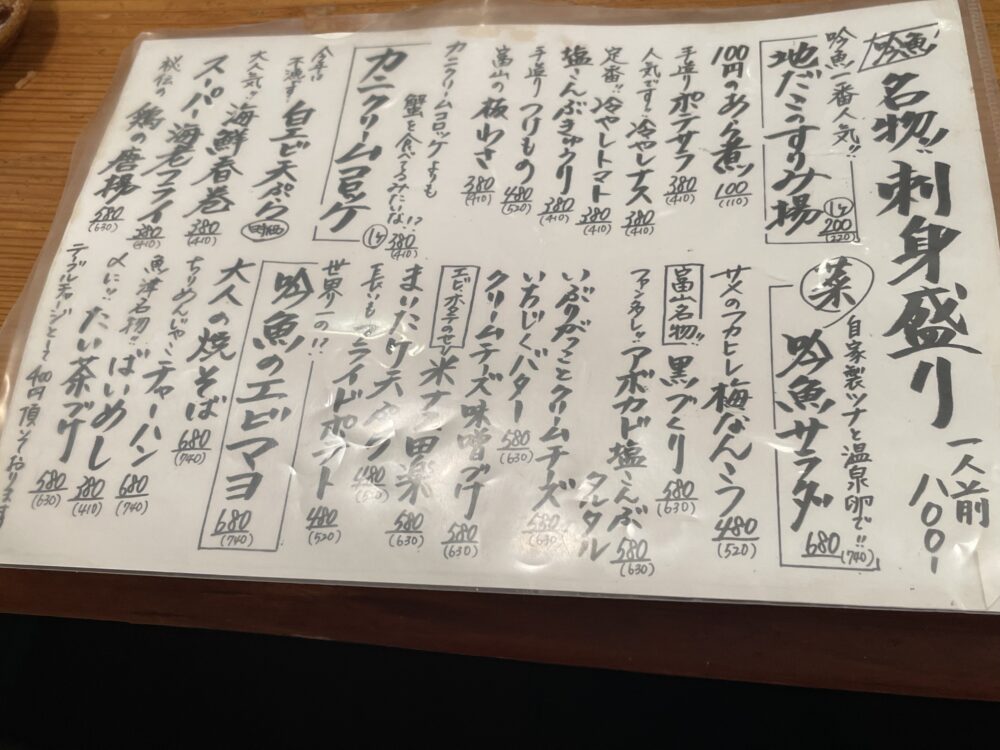 吟魚
名物!! 刺身盛り 一人前 八〇〇-
吟魚一番人気!!
地だこのすりみ揚 1ヶ 200 (220)
100円のあら煮 100 (110)
手造り ポテサラ 380 (410)
人気です・冷やしナス 380 (410)
定番!! 冷やしトマト 380 (410)
塩こんぶきゅうり 380 (410)
手造り つけもの 480 (520)
富山の 板わさ 380 (410)
カニクリームコロッケよりも
蟹を食べてるみたいな!?
カニクリームコロッケ 1ヶ 380 (410)
今年も不漁です! 白エビ天ぷら 時価
大人気!! 海鮮春巻 380 (410)
スーパー海老フライ 380 (410)
秘伝の 鶏の唐揚 580 (630)
菜 自家製ツナと温泉卵で!!
吟魚サラダ 680 (740)
サメのフカヒレ 梅なんこつ 480 (520)
富山名物!! 黒づくり 580 (630)
ファンタレ!! アボカド塩こんぶタルタル 580 (630)
いぶりがっことクリームチーズ 580 (630)
いちじくバター 580 (630)
クリームチーズ味噌づけ 580 (630)
エビホタテのせ! 米ナス田楽 580 (630)
まいたけ天ぷら 480 (520)
長いもフライドポテト 480 (520)
世界一の!?
吟魚のエビマヨ 680 (740)
大人の焼そば 680 (740)
ちりめんじゃこチャーハン 680 (740)
魚津名物!! ばいめし 380 (410)
〆に!! たい茶づけ 580 (630)
テーブルチャージとして 400円 頂いております